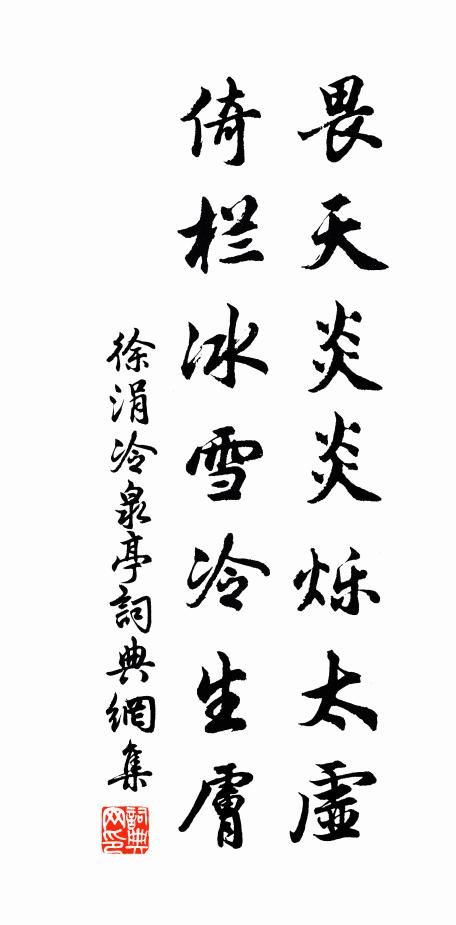 畏天炎炎烁太虚
倚栏冰雪冷生膚
徐涓冷泉亭詞典網集
詞典网印